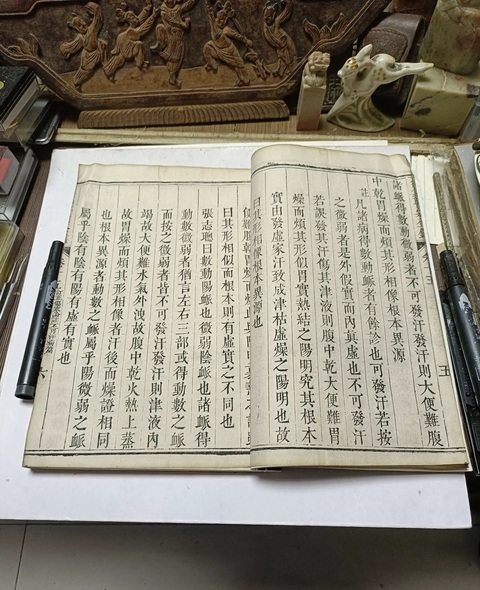 諸䘑得數動微弱者不可發汗發汗則大便難腹
中乾胃燥而煩其形相像根本異源
註凡諸病得數動䘑者有餘診也可發汗若按
之微弱者是外假實而內真虛也不可發汗
若誤發其汗傷其津液則腹中乾大便難胃
燥而煩其形似胃實熱結之陽明究其根本
實由發虛家汗致成津枯虛燥之陽明也故
曰其形相像根本異源也
曰其形相似而根本則有虛實之不同也
張志聰曰數動陽䘑也微弱陰䘑也諸䘑得
動數微弱者猶言左右三部或得動數之䘑
而按之微弱者皆不可發汗發汗則津液內
竭故大便難水氣外洩故腹中乾火熱上蒸
故胃燥而煩其形相像者汗後而燥證相同
也根本異源者動數之䘑屬乎陽微弱之䘑
屬乎陰有陰有陽有虛有實也
六